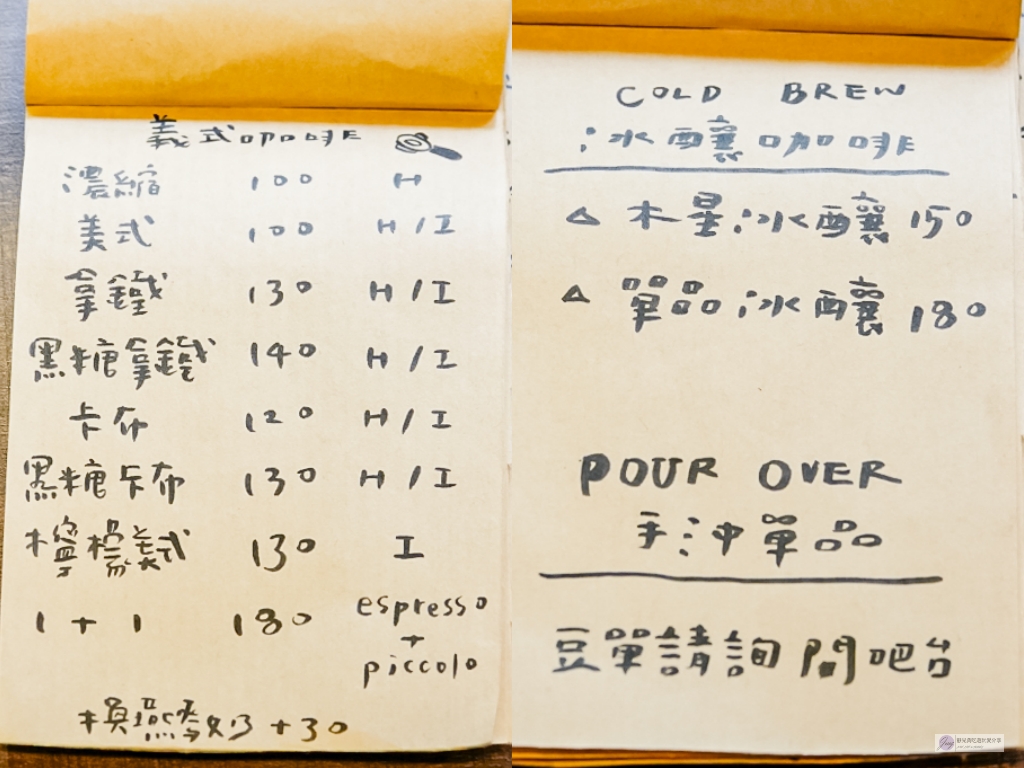 義式咖啡
濃縮 100 H
美式 100 H/I
拿鐵 130 H/I
黑糖拿鐵 140 H/I
卡布 120 H/I
黑糖卡布 130 H/I
檸檬美式 130 I
1+1 180 espresso
+
piccolo
換燕麥奶+30
COLD BREW
冰釀咖啡
△ 木星冰釀 150
△ 單品冰釀 180
POUR OVER
手沖單品
豆單請詢問吧台